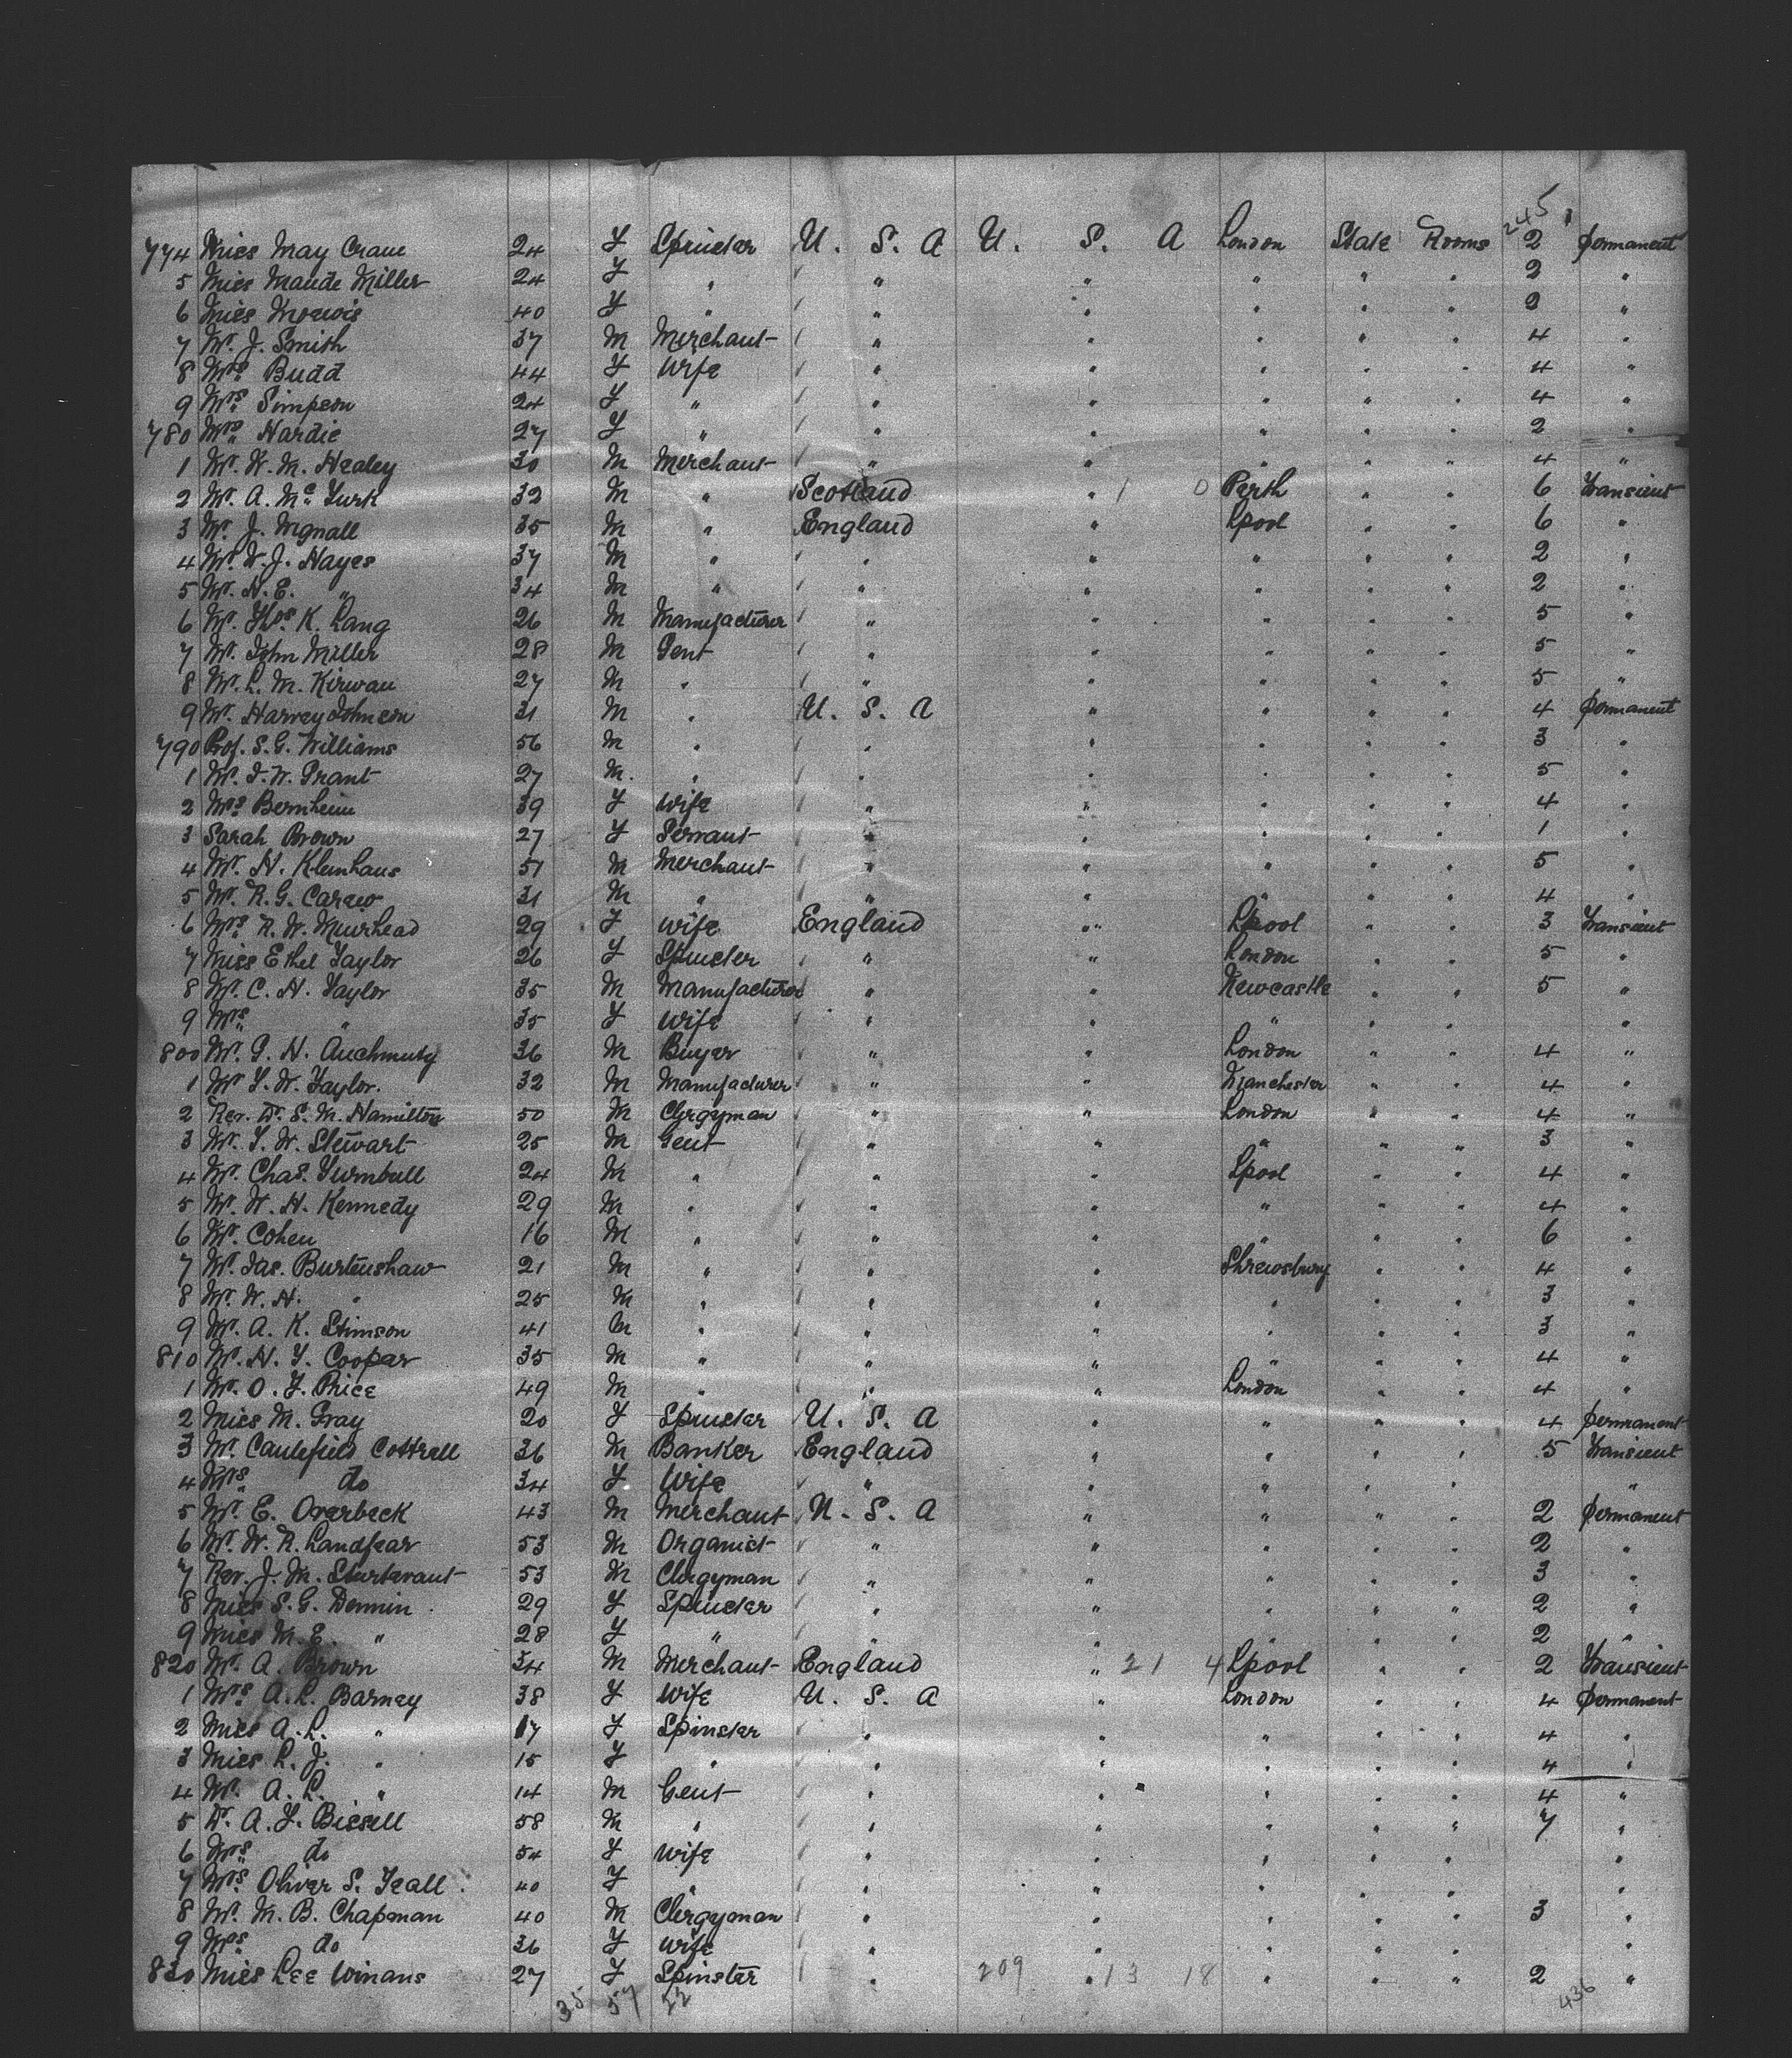 245
774 Miss May Crane 24 F Spinster U. S. A U. S. A London State Rooms 2 permanent
5 Miss Maude Miller 24 F " " " " " " 2 "
6 Miss 40 F " " " " " " 2 "
7 Mr. J. Smith 37 M Merchant " " " " " 4 "
8 Mrs. Budd 44 F Wife " " " " " 4 "
9 Mrs. Simpson 24 F " " " " " " 4 "
780 Mrs. Hardie 27 F " " " " " " 2 "
1 Mr. W. M. Healey 30 M Merchant " " " " " 4 "
2 Mr. A. Mc. Turk 32 M " Scotland " 1 0 Perth " " 6 Transient
3 Mr. J. Mgnall 35 M " England " Lpool " " 6 "
4 Mr. W. J. Hayes 37 M " " " " " " 2 "
5 Mr. H. E. " 34 M " " " " " " 2 "
6 Mr. Thos. K. Lang 26 M Manufacturer " " " " " 5 "
7 Mr. John Miller 28 M Gent " " " " " 5 "
8 Mr. L. M. Kirwan 27 M " " " " " " 5 "
9 Mr. Harvey Johnson 31 M " U. S. A " " " " 4 permanent
790 Prof. S. G. Williams 56 M " " " " " " 3 "
1 Mr. J. W. Grant 27 M. " " " " " " 5 "
2 Mrs. Bernheim 39 F Wife " " " " " 4 "
3 Sarah Brown 27 F Servant " " " " " 1 "
4 Mr. H. Kleinhans 51 M Merchant " " " " " 5 "
5 Mr. R. G. Carew 31 M " " " " " " 4 "
6 Mrs. R. W. Muirhead 29 F Wife England " Lpool " " 3 Transient
7 Miss Ethel Taylor 26 F Spinster " " London " " 5 "
8 Mr. C. H. Taylor 35 M Manufacturer " " Newcastle " " 5 "
9 Mrs. " 35 F Wife " " " " " "
800 Mr. G. H. Auchmuty 36 M Buyer " " London " " 4 "
1 Mr F. W. Taylor. 32 M Manufacturer " " Manchester " " 4 "
2 Rev. Dr. S. M. Hamilton 50 M Clergyman " " London " " 4 "
3 Mr. F. W. Stewart 25 M Gent " " " " " 3 "
4 Mr. Chas. Turnbull 24 M " " " Lpool " " 4 "
5 Mr. W. H. Kennedy 29 M " " " " " " 4 "
6 Mr. Cohen 16 M " " " " " " 6 "
7 Mr. Jas. Burtenshaw 21 M " " " Shrewsbury " " 4 "
8 Mr. W. H. " 25 M " " " " " " 3 "
9 Mr. A. K. Stimson 41 M " " " " " " 3 "
810 Mr. H. F. Cooper 35 M " " " " " " 4 "
1 Mr. O. F. Price 49 M " " " London " " 4 "
2 Miss M. Gray 20 F Spinster U. S. A " " " " 4 permanent
3 Mr. Caulefield Cottrell 36 M Banker England " " " " 5 Transient
4 Mrs. do 34 F Wife " " " " " "
5 Mr. E. Overbeck 43 M Merchant U. S. A " " " " 2 permanent
6 Mr. W. R. Landfear 53 M Organist " " " " " 2 "
7 Rev. J. M. Sturtevant 53 M Clergyman " " " " " 3 "
8 Miss S. G. Dennin 29 F Spinster " " " " " 2 "
9 Miss M. E. " 28 F " " " " " " 2 "
820 Mr. A. Brown 34 M Merchant England " 21 4 Lpool " " 2 Transient
1 Mrs A. L. Barney 38 F Wife U. S. A " London " " 4 permanent
2 Miss A. L. " 17 F Spinster " " " " " 4 "
3 Miss L. J. " 15 F " " " " " " 4 "
4 Mr. A. L. " 14 M Gent " " " " " 4 "
5 Dr. A. F. Bissell 58 M " " " " " " 7 "
6 Mrs. do 54 F Wife " " " " " "
7 Mrs. Oliver S. Teall 40 F " " " " " " "
8 Mr. M. B. Chapman 40 M Clergyman " " " " " 3 "
9 Mrs. do 36 F Wife " " " " " "
830 Miss Lee Winans 27 F Spinster " 209 " 13 18 " " " 2 "
35 57 22 436